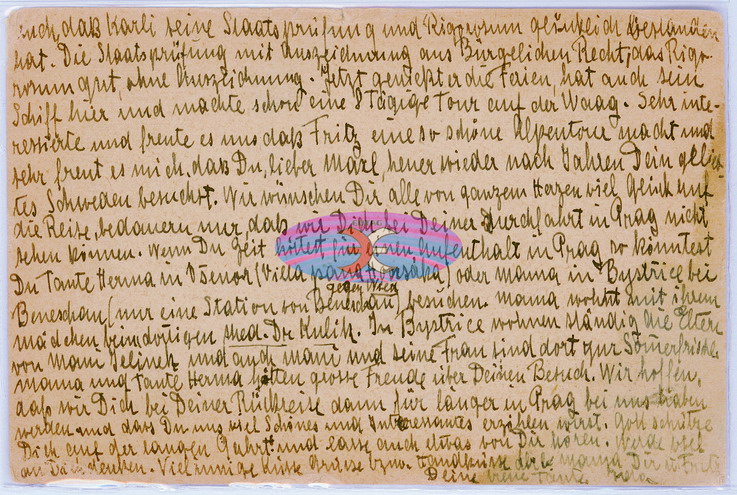 auch, daß Karli seine Staatsprüfung und Rigorosum glücklich bestanden
hat. Die Staatsprüfung mit Auszeichnung aus Bürgelichen Recht, das Rigo-
rosum gut, ohne Auszeichnung. Jetzt genießt er die Ferien, hat auch sein
Schiff hier und machte schon eine 8 Tägige Tour auf der Waag. Sehr inte-
ressierte und freute es uns daß Fritz eine so schöne Alpentour macht und
sehr freut es mich, daß Du, lieber heuer wieder nach Jahren Dein gelieb-
tes Schweden besuchst. Wir wünschen Dir alle von ganzem Herzen viel Glück auf
die Reise, bedauern nur, daß wir Dich bei Deiner Durchfahrt in Prag nicht
sehen können. Wenn Du Zeit hättest für einen Aufenthalt in Prag so könntest
Du Tante Herma in Všenor (Villa oder Mama in Bystřice bei
gegenüber
Beneschau (nur eine Station von Beneschau) besuchen. Mama wohnt mit ihrem
Mädchen beim dortigen med. Dr. Kulik. In Bystrice wohnen ständig die Eltern
von Mami Jelinek und auch Mami und seine Frau sind dort zur Sommerfrische.
Mama und Tante Herma hätten grosse Freude über Deinen Besuch. Wir hoffen,
daß wir Dich bei Deiner Rückreise dann für länger in Prag bei uns haben
werden und dass Du uns viel Schönes und Interesantes erzählen wirst. Gott schütze
Dich auf der langen Fahrt und lasse auch etwas von Dir hören. Werde viel
an Dich denken. Viel innige Küsse Grüsse bzw. Handküsse Mama, Dir u. Fritz
Deine Tante